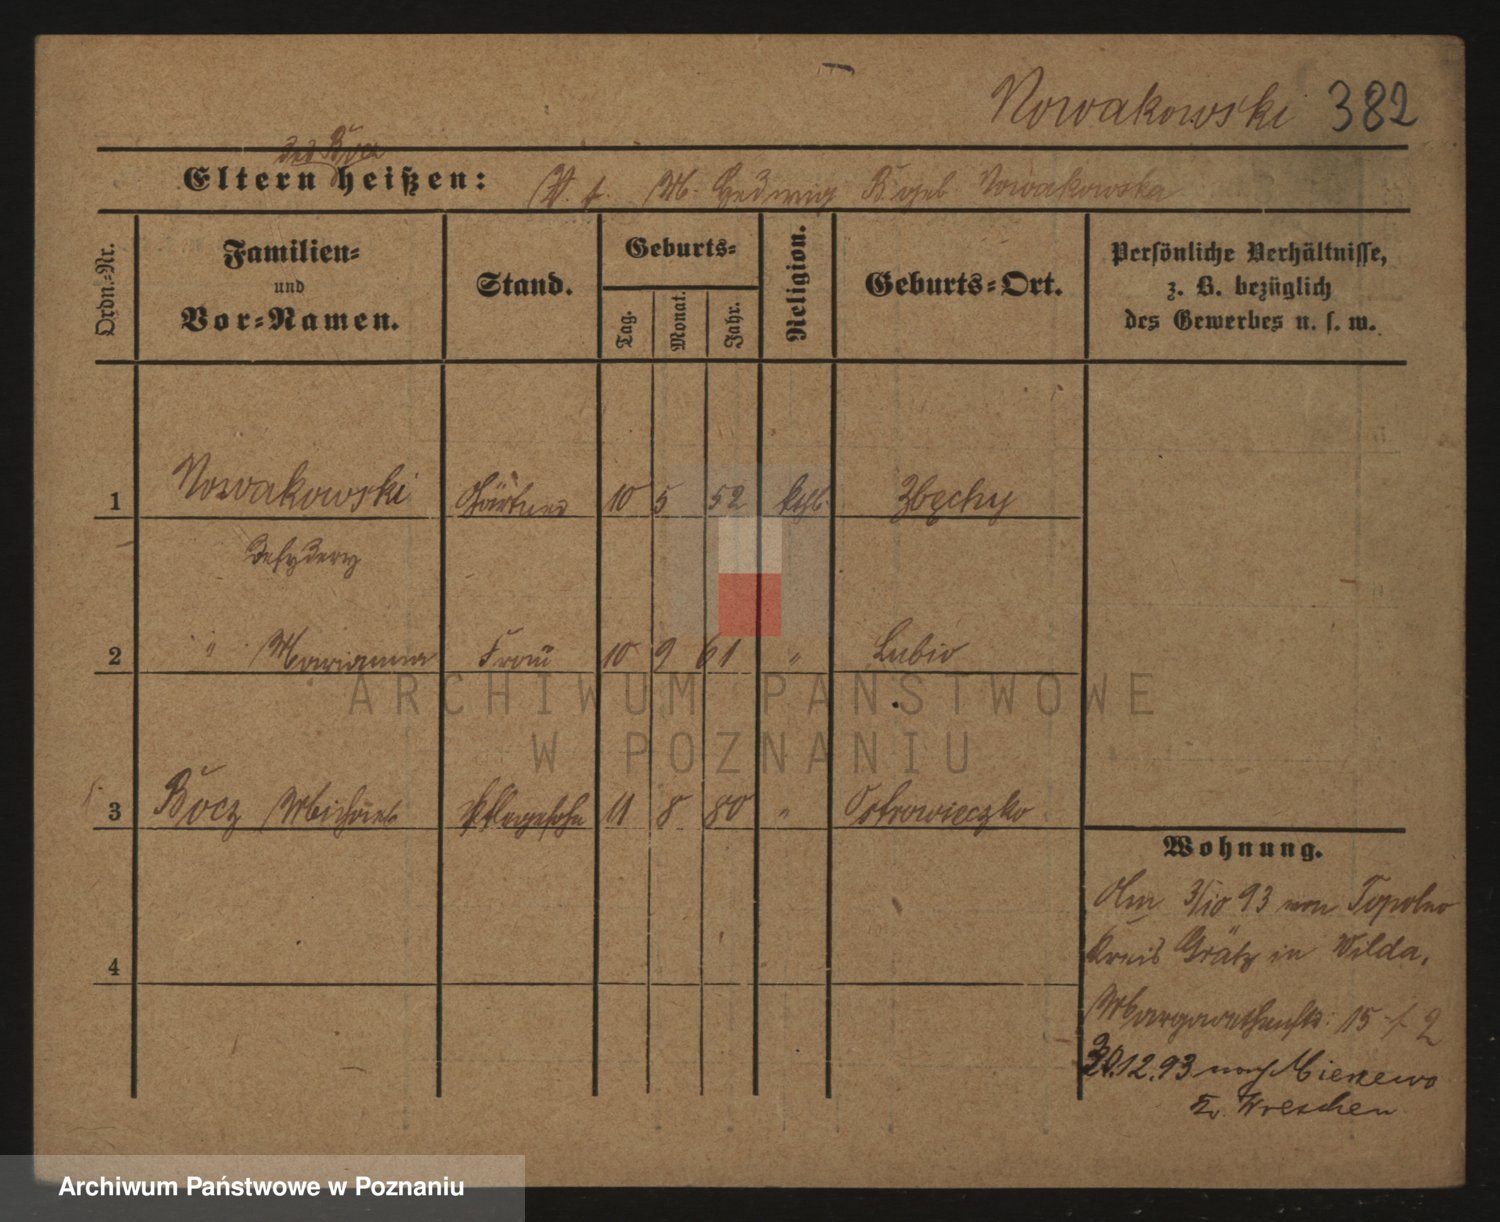 Nowakowski 382
des Bocz
Eltern heißen: V. †. M. Hedwig B. geb. Nowakowska
Ordn.-Nr.
Familien-
und
Vor-Namen.
Stand.
Geburts-
Tag.
Monat.
Jahr.
Religion.
Geburts-Ort.
Persönliche Verhältnisse,
z. B. bezüglich
des Gewerbes u. s. w.
1 Nowakowski Gärtner 10 5 52 kath. Zbęchy
Desydery
2 " Marianna Frau 10 9 61 " Lubin
3 Bocz Michael Pflegesohn 11 8 80 " Ostrowieczko
4
Wohnung.
Am 3/10 93 von Topolno
Kreis Grätz in Wilda,
Margarethenstr. 15
12.93 nach
Kr. Wreschen
ARCHIWUM PAŃSTWOWE
W POZNANIU
Archiwum Państwowe w Poznaniu